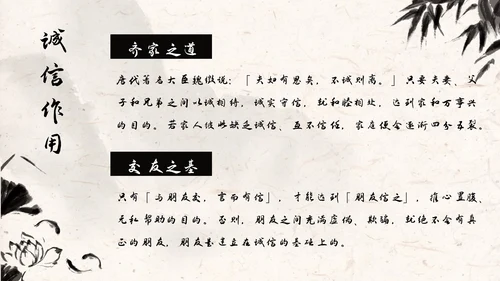 诚信作用
齐家之道
唐代著名大臣魏徵说：「夫妇有恩矣，不诚则离。」只要夫妻、父
子和兄弟之间以诚相待，诚实守信，就和睦相处，达到家和万事兴
的目的。若家人彼此缺乏诚信、互不信任，家庭便会逐渐四分五裂。
交友之基
只有「与朋友交，言而有信」，才能达到「朋友信之」，推心置腹、
无私帮助的目的。否则，朋友之间充满虚伪、欺骗，就绝不会有真
正的朋友，朋友是建立在诚信的基础上的。